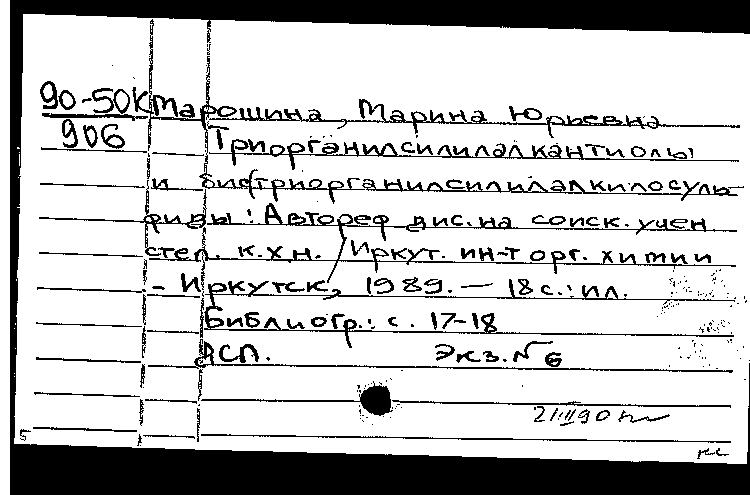 90-50К Марошина, Марина Юрьевна
906 Триорганилсилилалкантиолы
и бис(триорганилсилилалкилосуль
фиды: Автореф дис. на соиск. учен
степ. к.х.н. / Иркут. ин-т орг. химии
- Иркутск, 1989. — 18 с.: ил.
Библиогр.: с. 17-18
ДСП. Экз. № 6
5